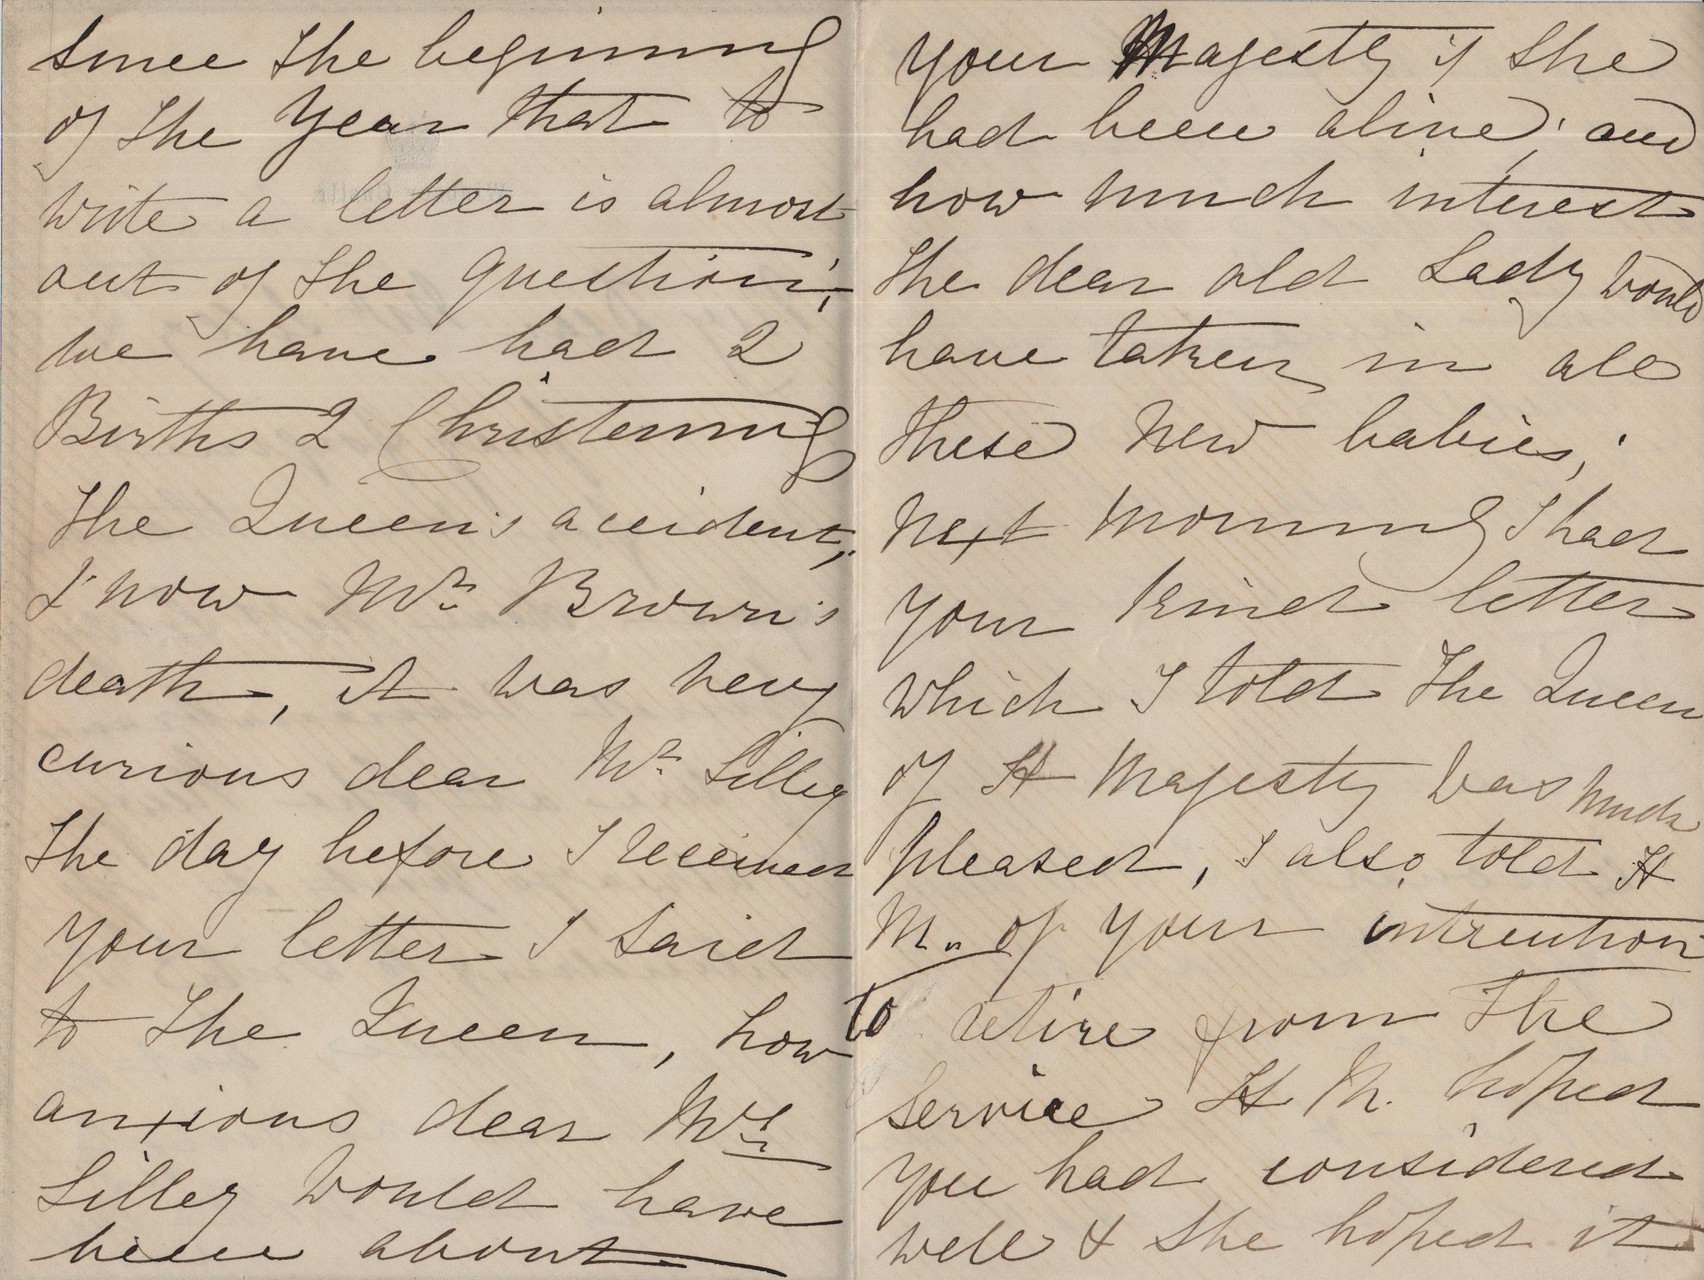 since the begining
of the Year that to
write a letter is almost
out of the question;
we have had 2
Births 2 Christening
The Queen's accident,
& now Mr. Brown's
death, it was very
curious dear Mr. Lilley
The day before I received
your letter I said
to The Queen, how
anxious dear Mrs.
Lilley would have
been about
your Majesty if She
had been alive; and
how much interest
the dear old Lady would
have taken in all
these New babies;
Next Morning I had
your kind letter
which I told The Queen
of H Majesty was much
pleased, I also told H
M. of your intention
to retire from The
Service H M. hoped
you had considered
well & She hoped it